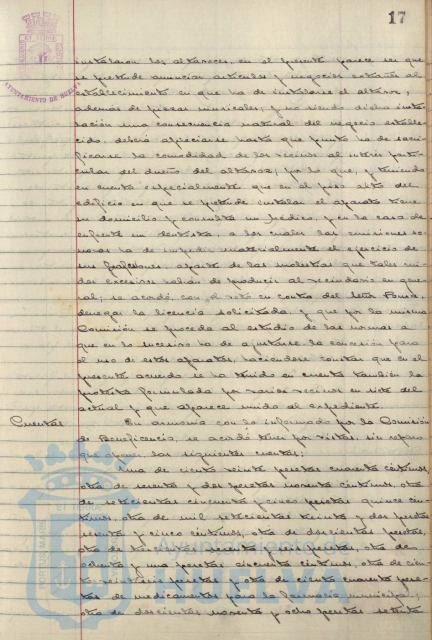 17
instalaron los altavoces, en el presente parece ser que
se pretende anunciar artículos y negocios extraños al
establecimiento en que ha de instalarse el altavoz,
además de piezas musicales; y no siendo dicha insta-
lación una consecuencia natural del negocio estable-
cido, deberá apreciarse hasta que punto ha de sacri-
ficarse la comodidad de los vecinos al interés parti-
cular del dueño del altavoz; por lo que, y teniendo
en cuenta especialmente que en el piso alto del
edificio en que se pretende instalar el aparato tiene
su domicilio y consulta un médico, y en la casa de
enfrente un dentista, a los cuales las emisiones so-
noras ha de impedir materialmente el ejercicio de
sus profesiones, aparte de las molestias que tales rui-
dos excesivos habían de producir al vecindario en gene-
ral; se acordó, con el voto en contra del Señor
denegar la licencia solicitada, y que por la misma
Comisión se proceda al estudio de las normas a
que en lo sucesivo ha de ajustarse la concesión para
el uso de estos aparatos, haciéndose constar que en el
presente acuerdo se ha tenido en cuenta también la
protesta formulada por varios vecinos en siete del
actual y que aparece unida al expediente.
Cuentas En armonía con lo informado por la Comisión
de Beneficencia, se acordó tener por vistas, sin reparo
que oponer, las siguientes cuentas:
Una de ciento veinte pesetas cuarenta céntimos,
otra de sesenta y dos pesetas noventa céntimos, otra
de setecientas cincuenta y cinco pesetas quince cén-
timos, otra de mil setecientas treinta y dos pesetas
sesenta y cinco céntimos, otra de doscientas pesetas,
otra de trescientas sesenta y seis pesetas, otra de
ochenta y una pesetas cincuenta céntimos, otra de cien-
to veintiseis pesetas y otra de ciento cuarenta pese-
tas de medicamentos para la farmacia municipal;
otra de doscientas noventa y ocho pesetas setenta
AYUNTAMIENTO DE HUELVA
Ayuntamiento de
HUELVA